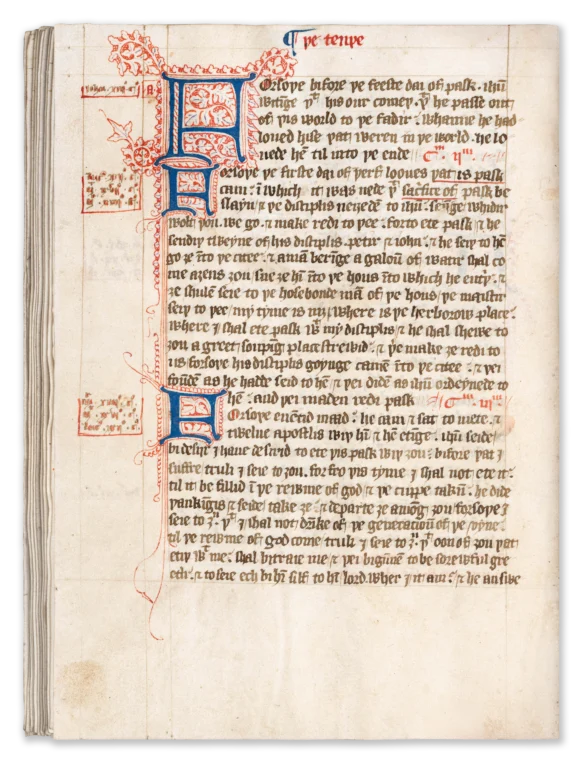 ¶ þe tenþe
Forsoþe bifore þe feeste dai of pask · ihū
witīge þᵗ his our comeþ · þᵗ he passe out
of þis world to þe fadir · whanne he had
loued hise þat weren in þe world · he lo
uede hē til into þe ende · Cᵐ ııᵐ
Forsoþe þe firste dai of þerf looues þat is pask
cam · ī which it was nede þᵗ sacrifice of pask be
slayn · ⁊ þe disciplis seiede to ihū · senge whidir
wolt þou we go · ⁊ make redi to þee · forto ete pask ⁊ he
sendiþ tweyne of his disciplis · petir ⁊ iohn · ⁊ he seiþ to hē
go ȝe īto þe citee · ⁊ a mā berīge a galoū of watir shal co
me aȝens ȝou sue ȝe hī īto þe hous īto which he entriþ · ⁊
ȝe shulē seie to þe hosebonde mā of þe hous / þe maistir
seiþ to þee / my tyme is niȝ / where is þe herborow place ·
where i shal ete pask wᵗ my disciplis ⁊ he shal shewe to
ȝou a greet soupīg place strewid · ⁊ þe make ȝe redi to
us · forsoþe his disciplis goynge camē īto þe citee · ⁊ þei
foūde as he hadde seid to hē ⁊ þei didē as ihū ordeynede to
hē · and þei maden redi pask Cᵐ ıııᵐ
Forsoþe euentid maad · he cam ⁊ sat to mete · ⁊
twelue apostlis wiþ hī ⁊ hē etīge · ihū seide /
bi desijr i haue desirid to ete þis pask wiþ ȝou · bifore þat i
suffre truli i seie to ȝou · for fro þis tyme i shal not ete it ·
til it be fillid ī þe rewme of god ⁊ þe cuppe takū · he dide
þankīgis ⁊ seide / take ȝe · ⁊ departe ȝe among ȝou forsoþe i
seie to ȝᵘ · þᵗ i shal not drīke of þe generacioū of þe vyne ·
til þe rewme of god come truli i seie to ȝᵘ þᵗ oon of ȝou þat
etiþ wᵗ me · shal bitraie me ⁊ þei bigūne to be sorewful gre
etli · ⁊ to seie ech bi hī silf to hī lord wher i it am · ⁊ he answe